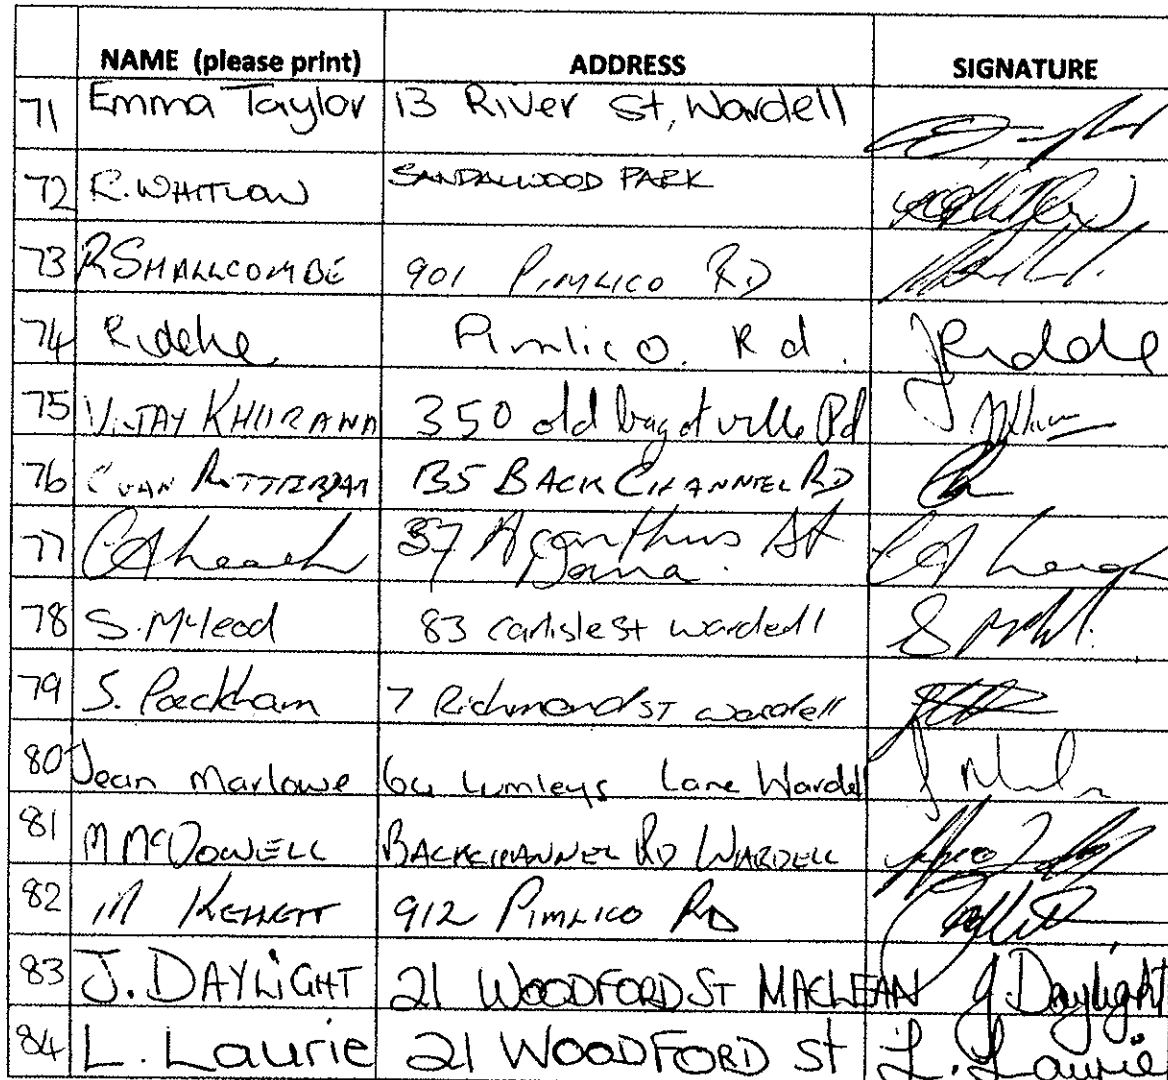 NAME (please print) ADDRESS SIGNATURE
71 Emma Taylor 13 River St, Wardell
72 R. WHITLOW SANDALWOOD PARK
73 R SMALLCOMBE 901 PIMLICO RD
74 Pimlico. Rd.
75 VIJAY KHURANA 350 old bagotville Rd
76 C VAN ROTTERDAM 135 BACK CHANNEL RD
77 37 Acanthus St
78 S. McLeod 83 Carlisle St Wardell
79 S. Peckham 7 Richmond ST Wardell
80 Jean Marlowe 64 Lumleys Lane Wardell
81 M MCDOWELL BACKCHANNEL RD WARDELL
82 M 912 PIMLICO RD
83 J. DAYLIGHT 21 WOODFORD ST MACLEAN J Daylight
84 L. Laurie 21 WOODFORD St L. Laurie